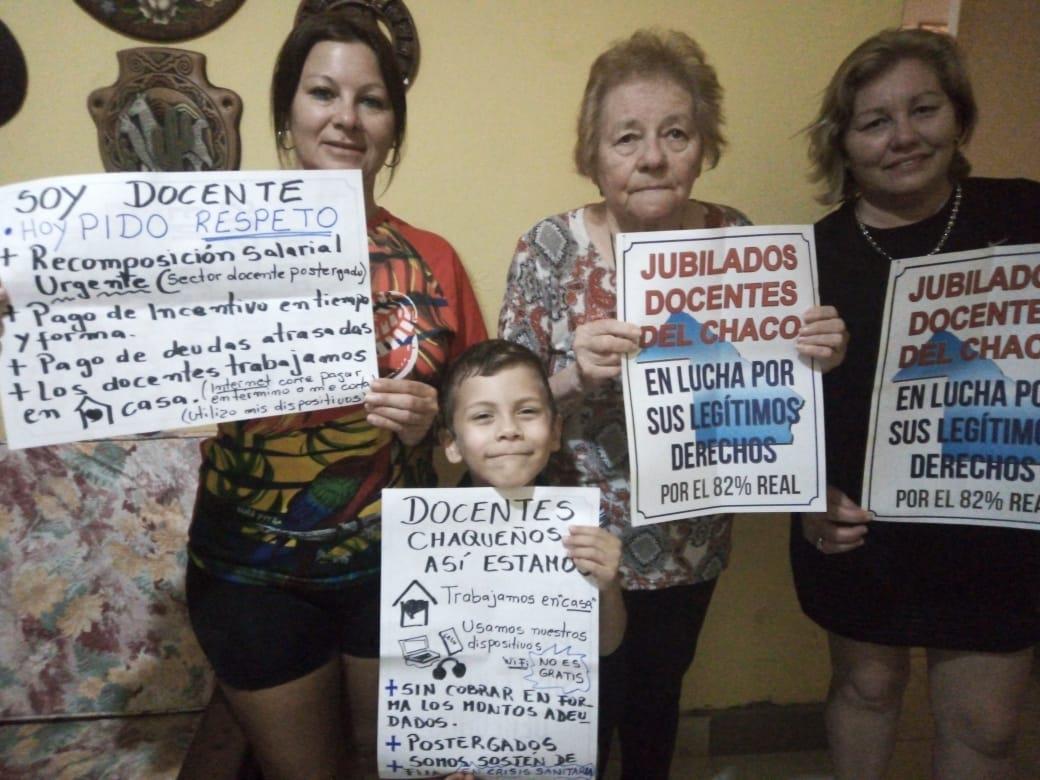 SOY DOCENTE
• HOY PIDO RESPETO
+ Recomposición salarial
Urgente (sector docente postergado)
+ Pago de Incentivo en tiempo
y forma.
+ Pago de deudas atrasadas
+ Los docentes trabajamos
en casa. (Internet corre pagar
en termino o me corta)
(utilizo mis dispositivos)
DOCENTES
CHAQUEÑOS
ASÍ ESTAMO
Trabajamos en "casa"
Usamos nuestros
dispositivos
WiFi NO ES
GRATIS
+ SIN COBRAR EN FOR-
MA LOS MONTOS ADEU
DADOS.
+ POSTERGADOS
+ SOMOS SOSTÉN DE
(EN CRISIS SANITARIA
JUBILADOS
DOCENTES
DEL CHACO
EN LUCHA POR
SUS LEGÍTIMOS
DERECHOS
POR EL 82% REAL
JUBILADO
DOCENTE
DEL CHAC
EN LUCHA PO
SUS LEGÍTIMO
DERECHOS
POR EL 82% REA